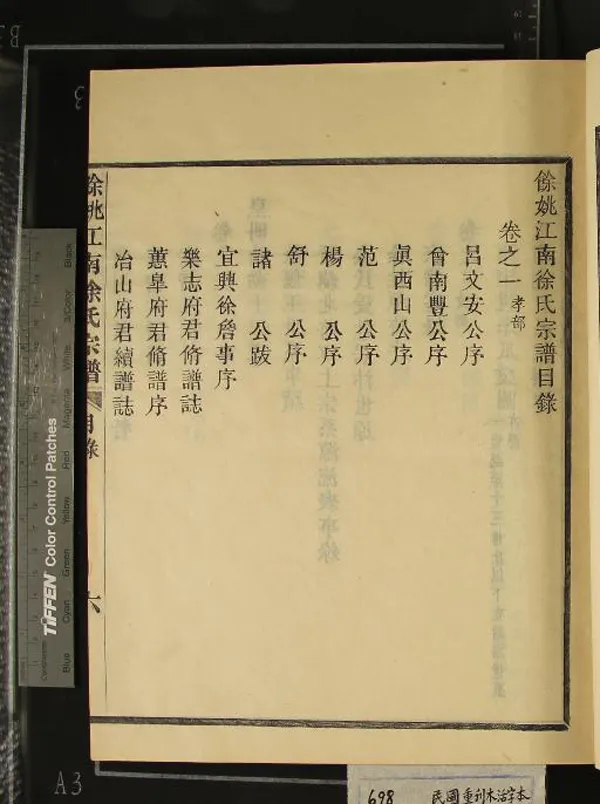 餘姚江南徐氏宗譜目錄
卷之一 孝部
呂文安公序
曾南豐公序
眞西山公序
范 公序
楊 公序
舒 公序
諸 公跋
宜興徐詹事序
樂志府君脩譜誌
蕙皐府君脩譜序
冶山府君續譜誌
餘姚江南徐氏宗譜 目錄 六
TIFFEN Color Control Patches
Blue Cyan Green Yellow Red Magenta White 3/Color Black
A3
698 民國重刊木活字本